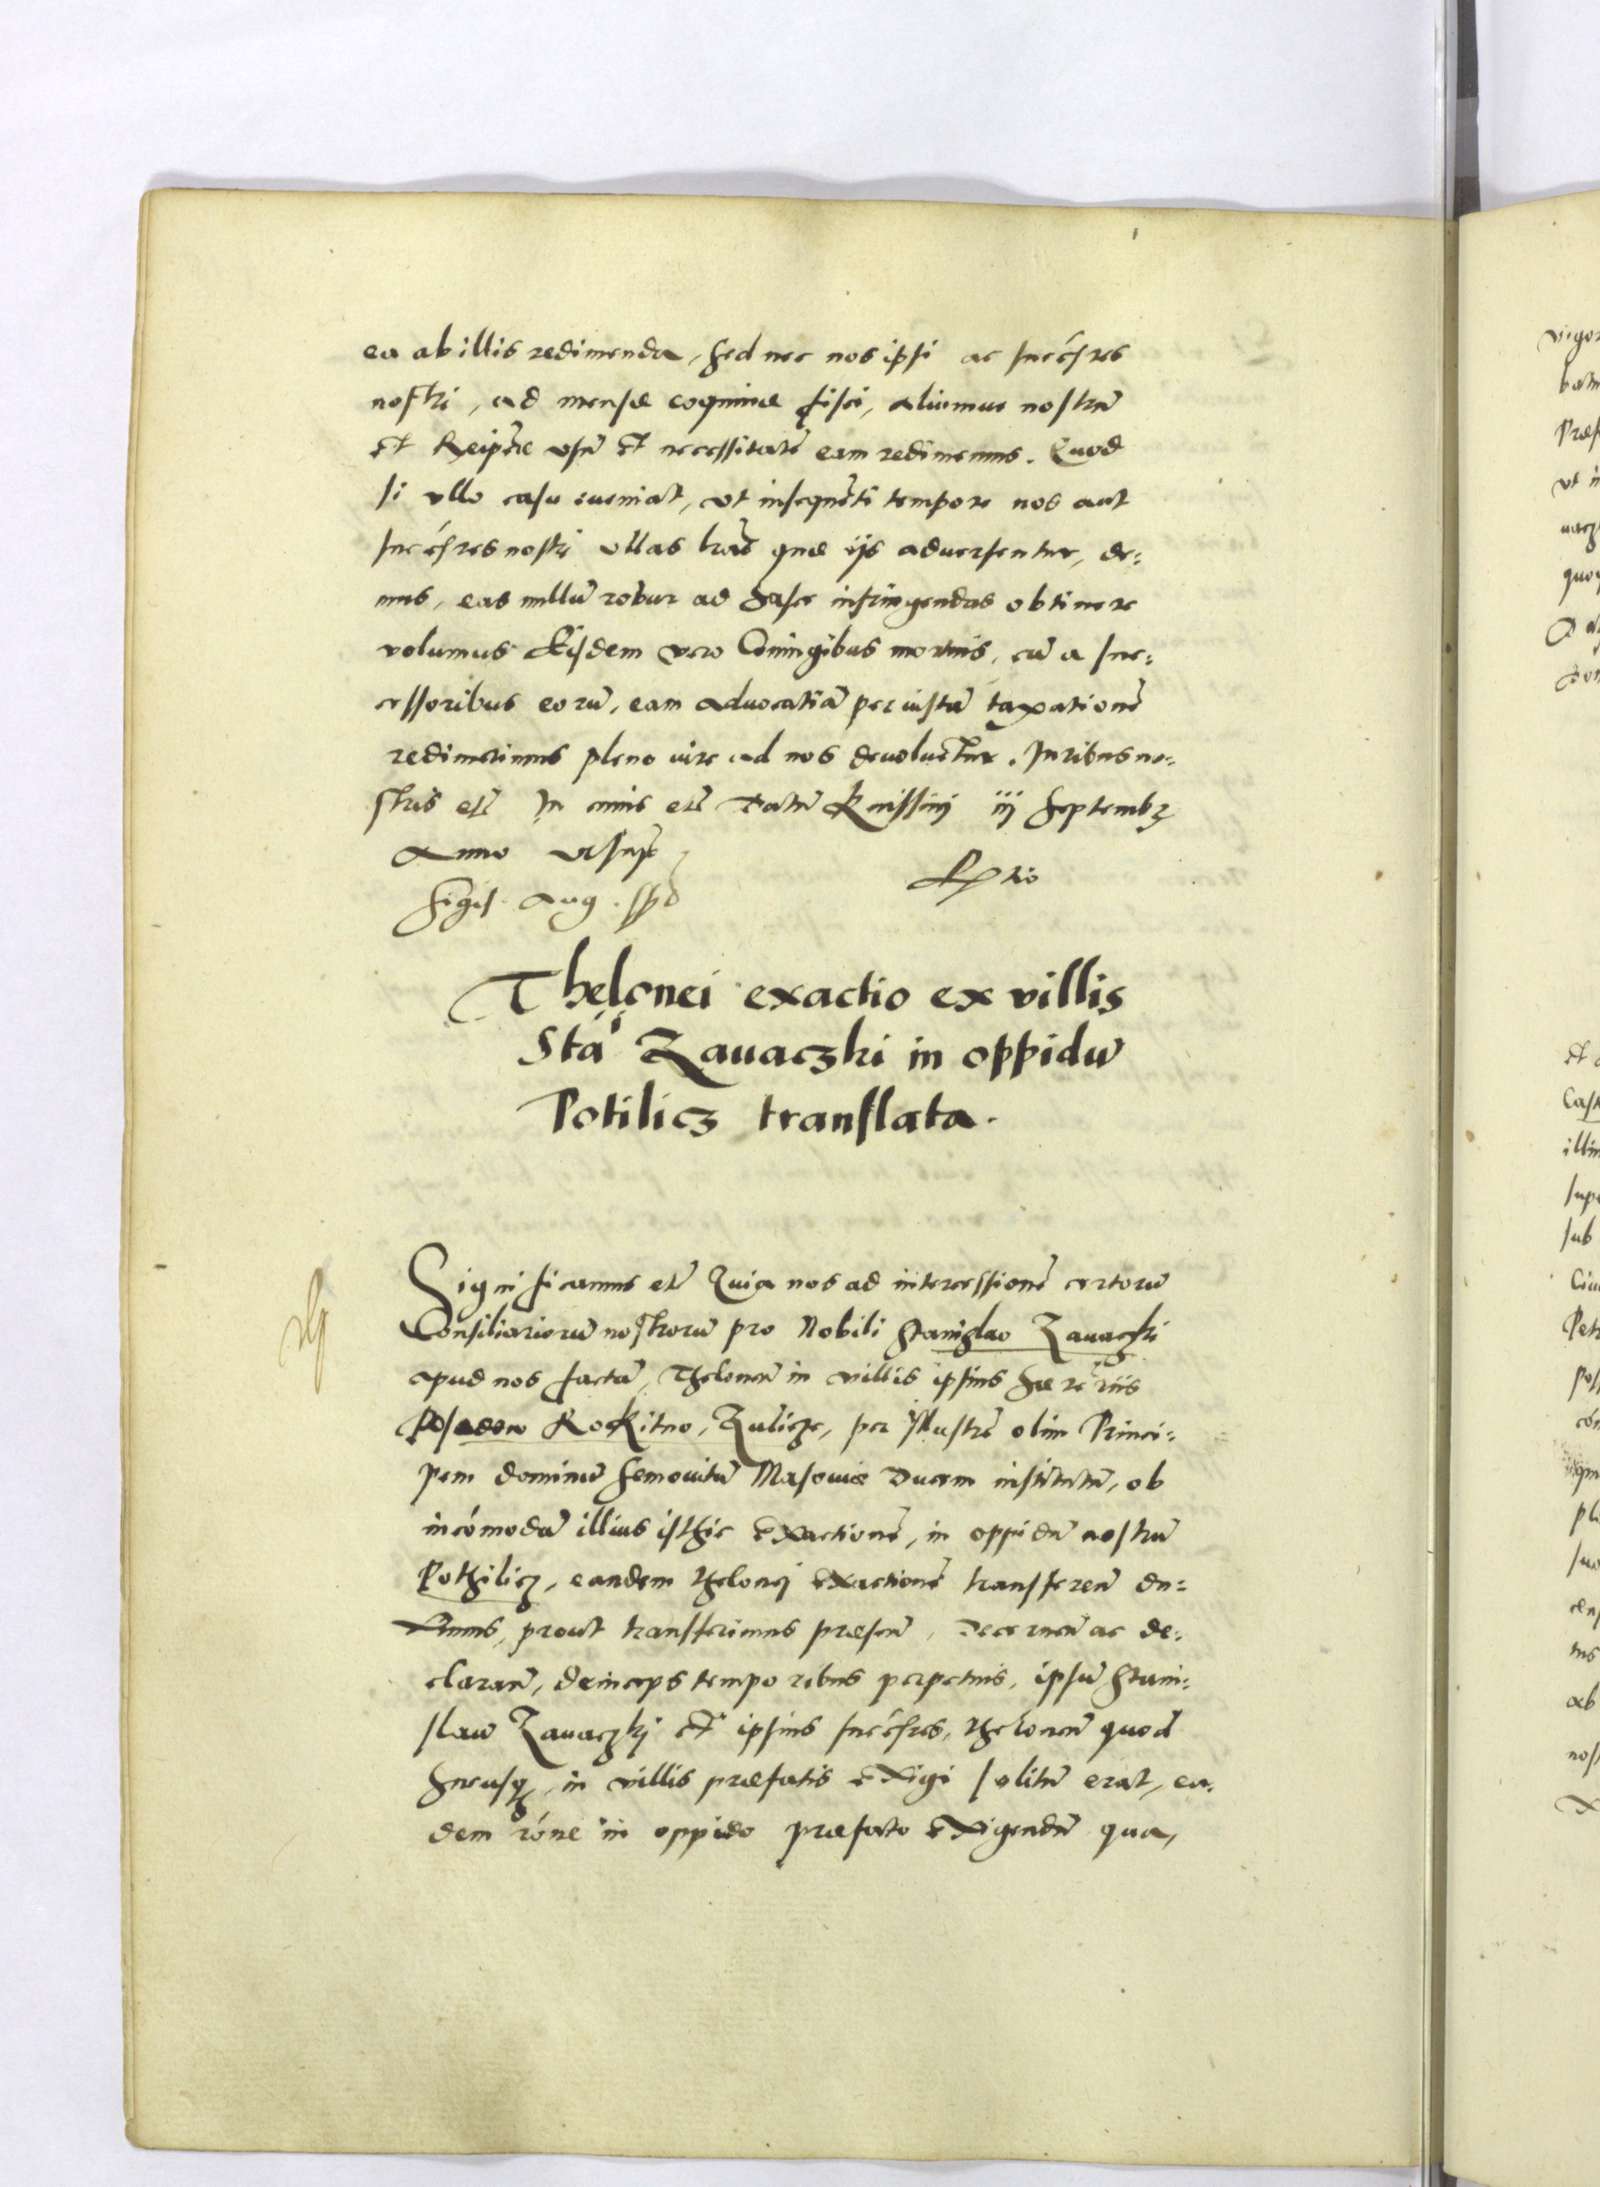 ea ab illis redimenda, sed nec nos ipsi ac succ̃sres
nostri, ad mensæ coquinæ fisci, aliumue nostrũ
et Reipce usũ et necessitatẽ eam redimemus. Quod
si ullo casu eueniat, ut insequẽti tempore nos aut
succ̃sres nostri ullas lras quæ ijs aduersentur, de:
mus, eas nullũ robur ad hasce infringendas obtinere
volumus Eisdem vero Coniugibus mortuis, cũ a suc:
cessoribus eorũ, eam aduocatiã per iustã taxationẽ
redimerimus pleno iure ad nos deuoluetur. Juribus no:
stris etc̃ In cuius etc̃ Datũ Knissini iij Septembʒ
Anno ut sup̃
Sigis. Aug. ssp̃t
Thelonei exactio ex villis
Sta͂i Zauaczki in oppidũ
Potilicz translata.
Significamus etc̃ Quia nos ad intercessionẽ certorũ
Consiliariorũ nostrorũ pro Nobili Stanislao Zauaczki
apud nos factã, Theloneũ in villis ipsius hæredriis
Rokitno, Zulicze, per Illustrẽ olim Princi:
pem dominũ Semouitũ Masouiæ Ducem institutũ, ob
incõmodã illius isthic exactionẽ, in oppidũ nostrũ
Pothilicz, eandem thelonej exactionẽ transferen̄ du:
ximus, prout transferimus præsen̄, Decernen̄ ac de:
claran̄, deinceps temporibus perpetuis, ipsũ Stani:
slaũ Zauaczkj et ipsius succ̃sres, theloneũ quod
hucusqʒ, in villis præfatis exigi solitũ erat, ea:
dem rõne in oppido præfato exigendũ qua,